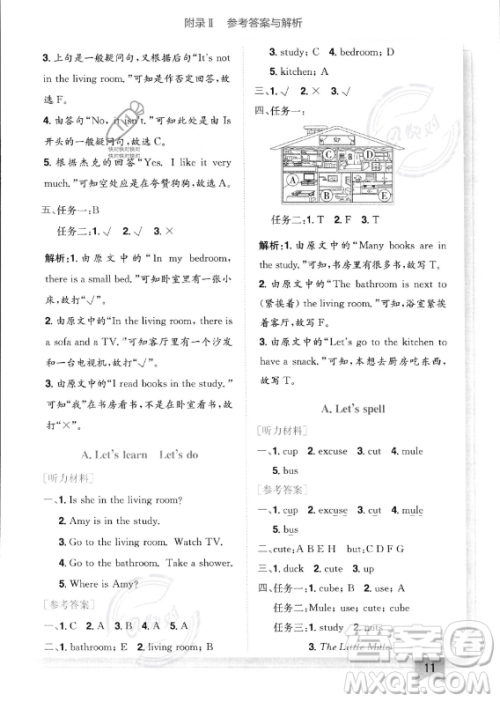 附录Ⅱ 参考答案与解析
3. 上句是一般疑问句，又由“It's not
in the living room.”可知是否定回答，故
选 F。
4. 由答句“No, it isn't.”可知此处是由 Is
开头的一般疑问句，故选 A。
5. 根据杰克的回答“Yes. I like it very
much.”可知空处应是在夸赞狗狗，故选 E。
五、任务一：B
任务二：1. √ 2. √ 3. ×
解析：1. 由原文中的“In my bedroom,
there is a small bed.”可知卧室里有一张小
床，故打“√”。
2. 由原文中的“In the living room, there is
a sofa and a TV.”可知客厅里有一个沙发
和一台电视机，故打“√”。
3. 由原文中的“I read books in the study.”
可知“我”在书房看书，不是在卧室看书，故
打“×”。
A. Let's learn Let's do
[听力材料]
一、1. Is she in the living room?
2. Amy is in the study.
3. Go to the living room. Watch TV.
4. Go to the bathroom. Take a shower.
5. Where is Amy?
[参考答案]
一、1. C 2. A 3. B 4. C 5. A
二、1. bathroom; E 2. living room; B
3. study; C 4. bedroom; D
5. kitchen; A
三、1. √ 2. × 3. √
四、任务一：
A
B
C
D
E
任务二：1. T 2. T 3. F
解析：1. 由原文中的“Many books are in
the study.”可知，书房里有很多书，故写 T。
2. 由原文中的“The bathroom is next to
(紧挨着) the living room.”可知，浴室紧挨
着客厅，故写 T。
3. 由原文中的“Let's go to the kitchen to
have a snack.”可知，本想去厨房吃东西，
故写 F。
A. Let's spell
[听力材料]
一、1. cup 2. excuse 3. cut 4. mule
5. bus
[参考答案]
一、1. cup 2. excuse 3. cut 4. mule
5. bus
二、cute; A B E H but; C D F G
三、1. duck 2. cut 3. cute 4. fun
四、任务一：1. cube; B 2. bus; A
任务二：1. Mule; use; cute; cube
2. study; cut; bus; but
3. The Little Mule
11